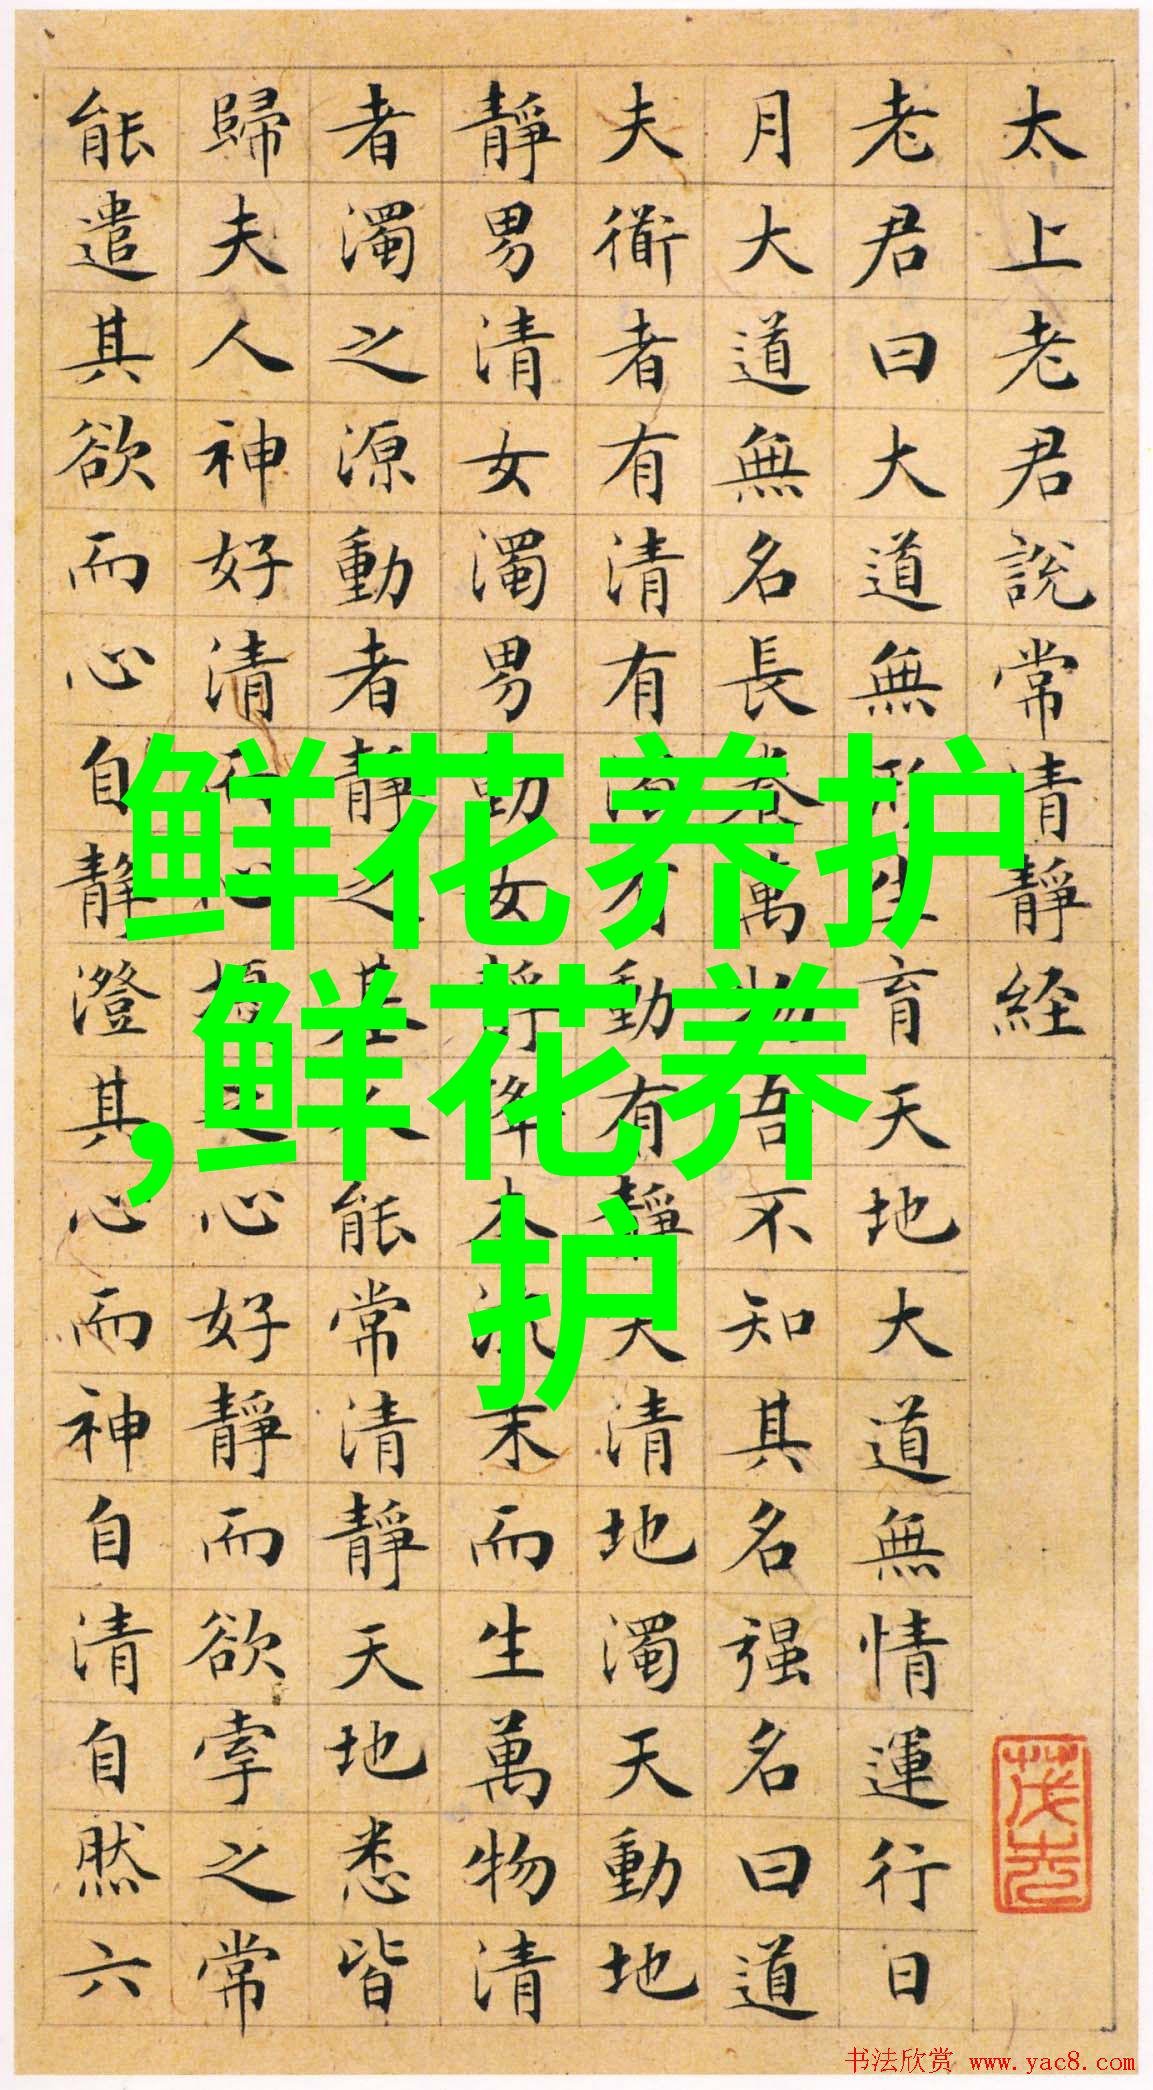 太上老君説常清靜経
老君曰大道無形生育天地大道無情運行日
月大道無名長養萬物吾不知其名强名曰道
夫衜者有清有濁有動有靜天清地濁天動地
靜男清女濁男動女靜降本流末而生萬物清
者濁之源動者靜之基人能常清靜天地悉皆
歸夫人神好清而心擾之心好靜而欲牽之常
能遣其欲而心自靜澄其心而神自清自然六
鲜花养护
,鲜花养
护
书法欣赏 www.yac8.com